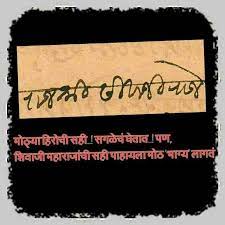 राजश्री राजे
मोठ्या हिरोची सही ! सगळेचं घेतात ! पण,
शिवाजी महाराजांची सही पाहायला मोठ 'भाग्य' लागतं